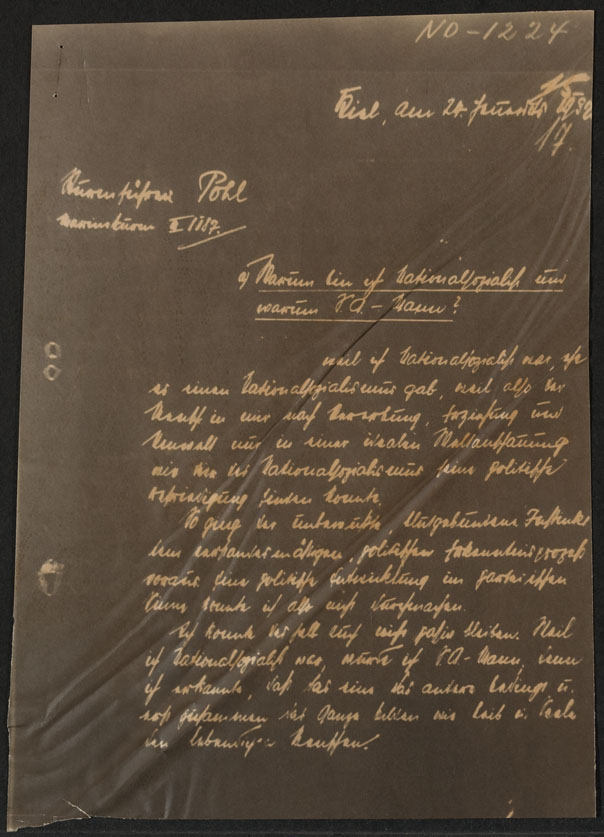 NO-1224
Kiel, am 24. Januar 1932
17.
Sturmführer Pohl
Marinesturm II/187.
a) Warum bin ich Nationalsozialist und
warum SA.-Mann?
Weil ich Nationalsozialist war, ehe
es einen Nationalsozialismus gab, weil also der
Mensch in mir nach Vererbung, Erziehung und
Umwelt nur in einer idealen Weltanschauung
wie der des Nationalsozialismus seine politische
Befriedigung finden konnte.
So ging der unbewußte, blutgebundene Instinkt
dem verstandesmäßigen, politischen Erkenntnisprozeß
voraus. Eine politische Entwicklung im parteilichen
Sinne konnte ich also nicht durchmachen.
Ich konnte deshalb auch nicht passiv bleiben. Weil
ich Nationalsozialist war, wurde ich SA.-Mann, denn
ich erkannte, daß das eine das andere bedingt u.
erst zusammen das Ganze bilden wie Leib u. Seele
den lebendigen Menschen.